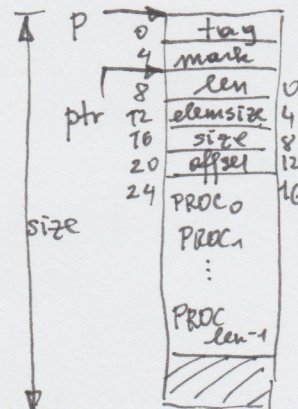 P 0 tag
4 mark
ptr 8 len 0
12 elemsize 4
16 size 8
20 offset 12
24 PROC0 16
size PROC1
⋮
PROC len-1